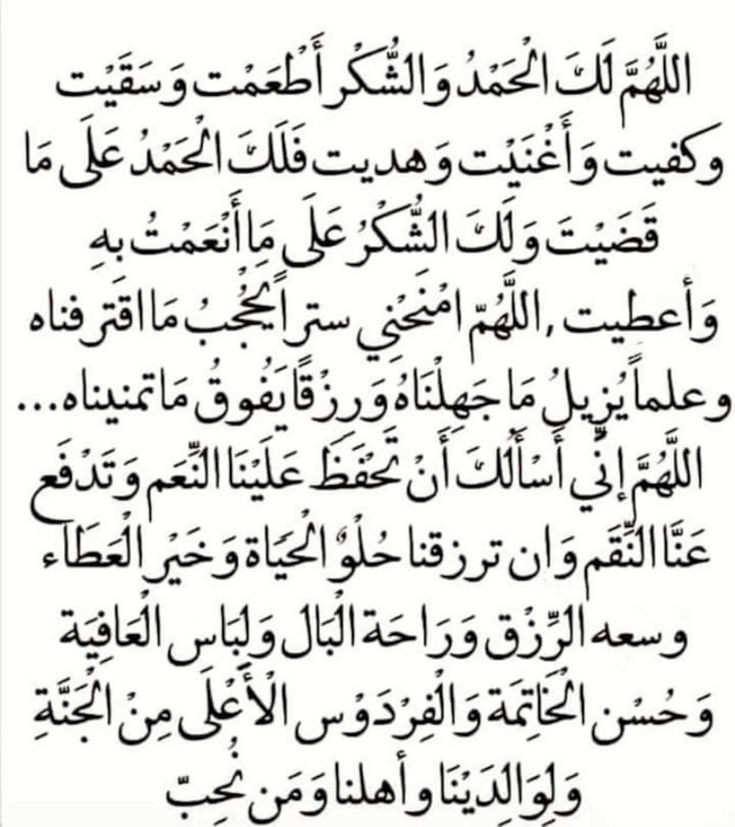 اللَّهُمَّ لَكَ الْحَمْدُ وَالشُّكْر أَطْعَمْت وَسَقَيْت
وكفيت وَأَغْنَيْت وَهديت فَلَكَ الْحَمْدُ عَلَى مَا
قَضَيْتَ وَلَكَ الشُّكْرُ عَلَى مَا أَنْعَمْتُ بِهِ
وَأعطيت ,اللَّهُمّ امْنَحْنِي ستراً يَحْجُبُ مَا اقْترفناه
وعلماً يُزِيلُ مَا جَهِلْنَاهُ وَرِزْقًا يَفُوقُ مَا تمنيناه...
اللَّهُمَّ إنِّي أَسْأَلُكَ أَنْ تَحْفَظَ عَلَيْنَا النِّعَم وَتَدْفَع
عَنَّا النِّقَم وَان ترزقنا حُلْوٌ الْحَيَاة وَخَيْر الْعَطَاء
وسعه الرِّزْق وَرَاحَة الْبَال وَلِبَاس الْعَافِيَة
وَحُسْن الْخَاتِمَة وَالْفِرْدَوْس الْأَعْلَى مِنْ الْجَنَّةِ
وَلِوَالِدَيْنَا وأهلنا وَمَن نُحِبّ